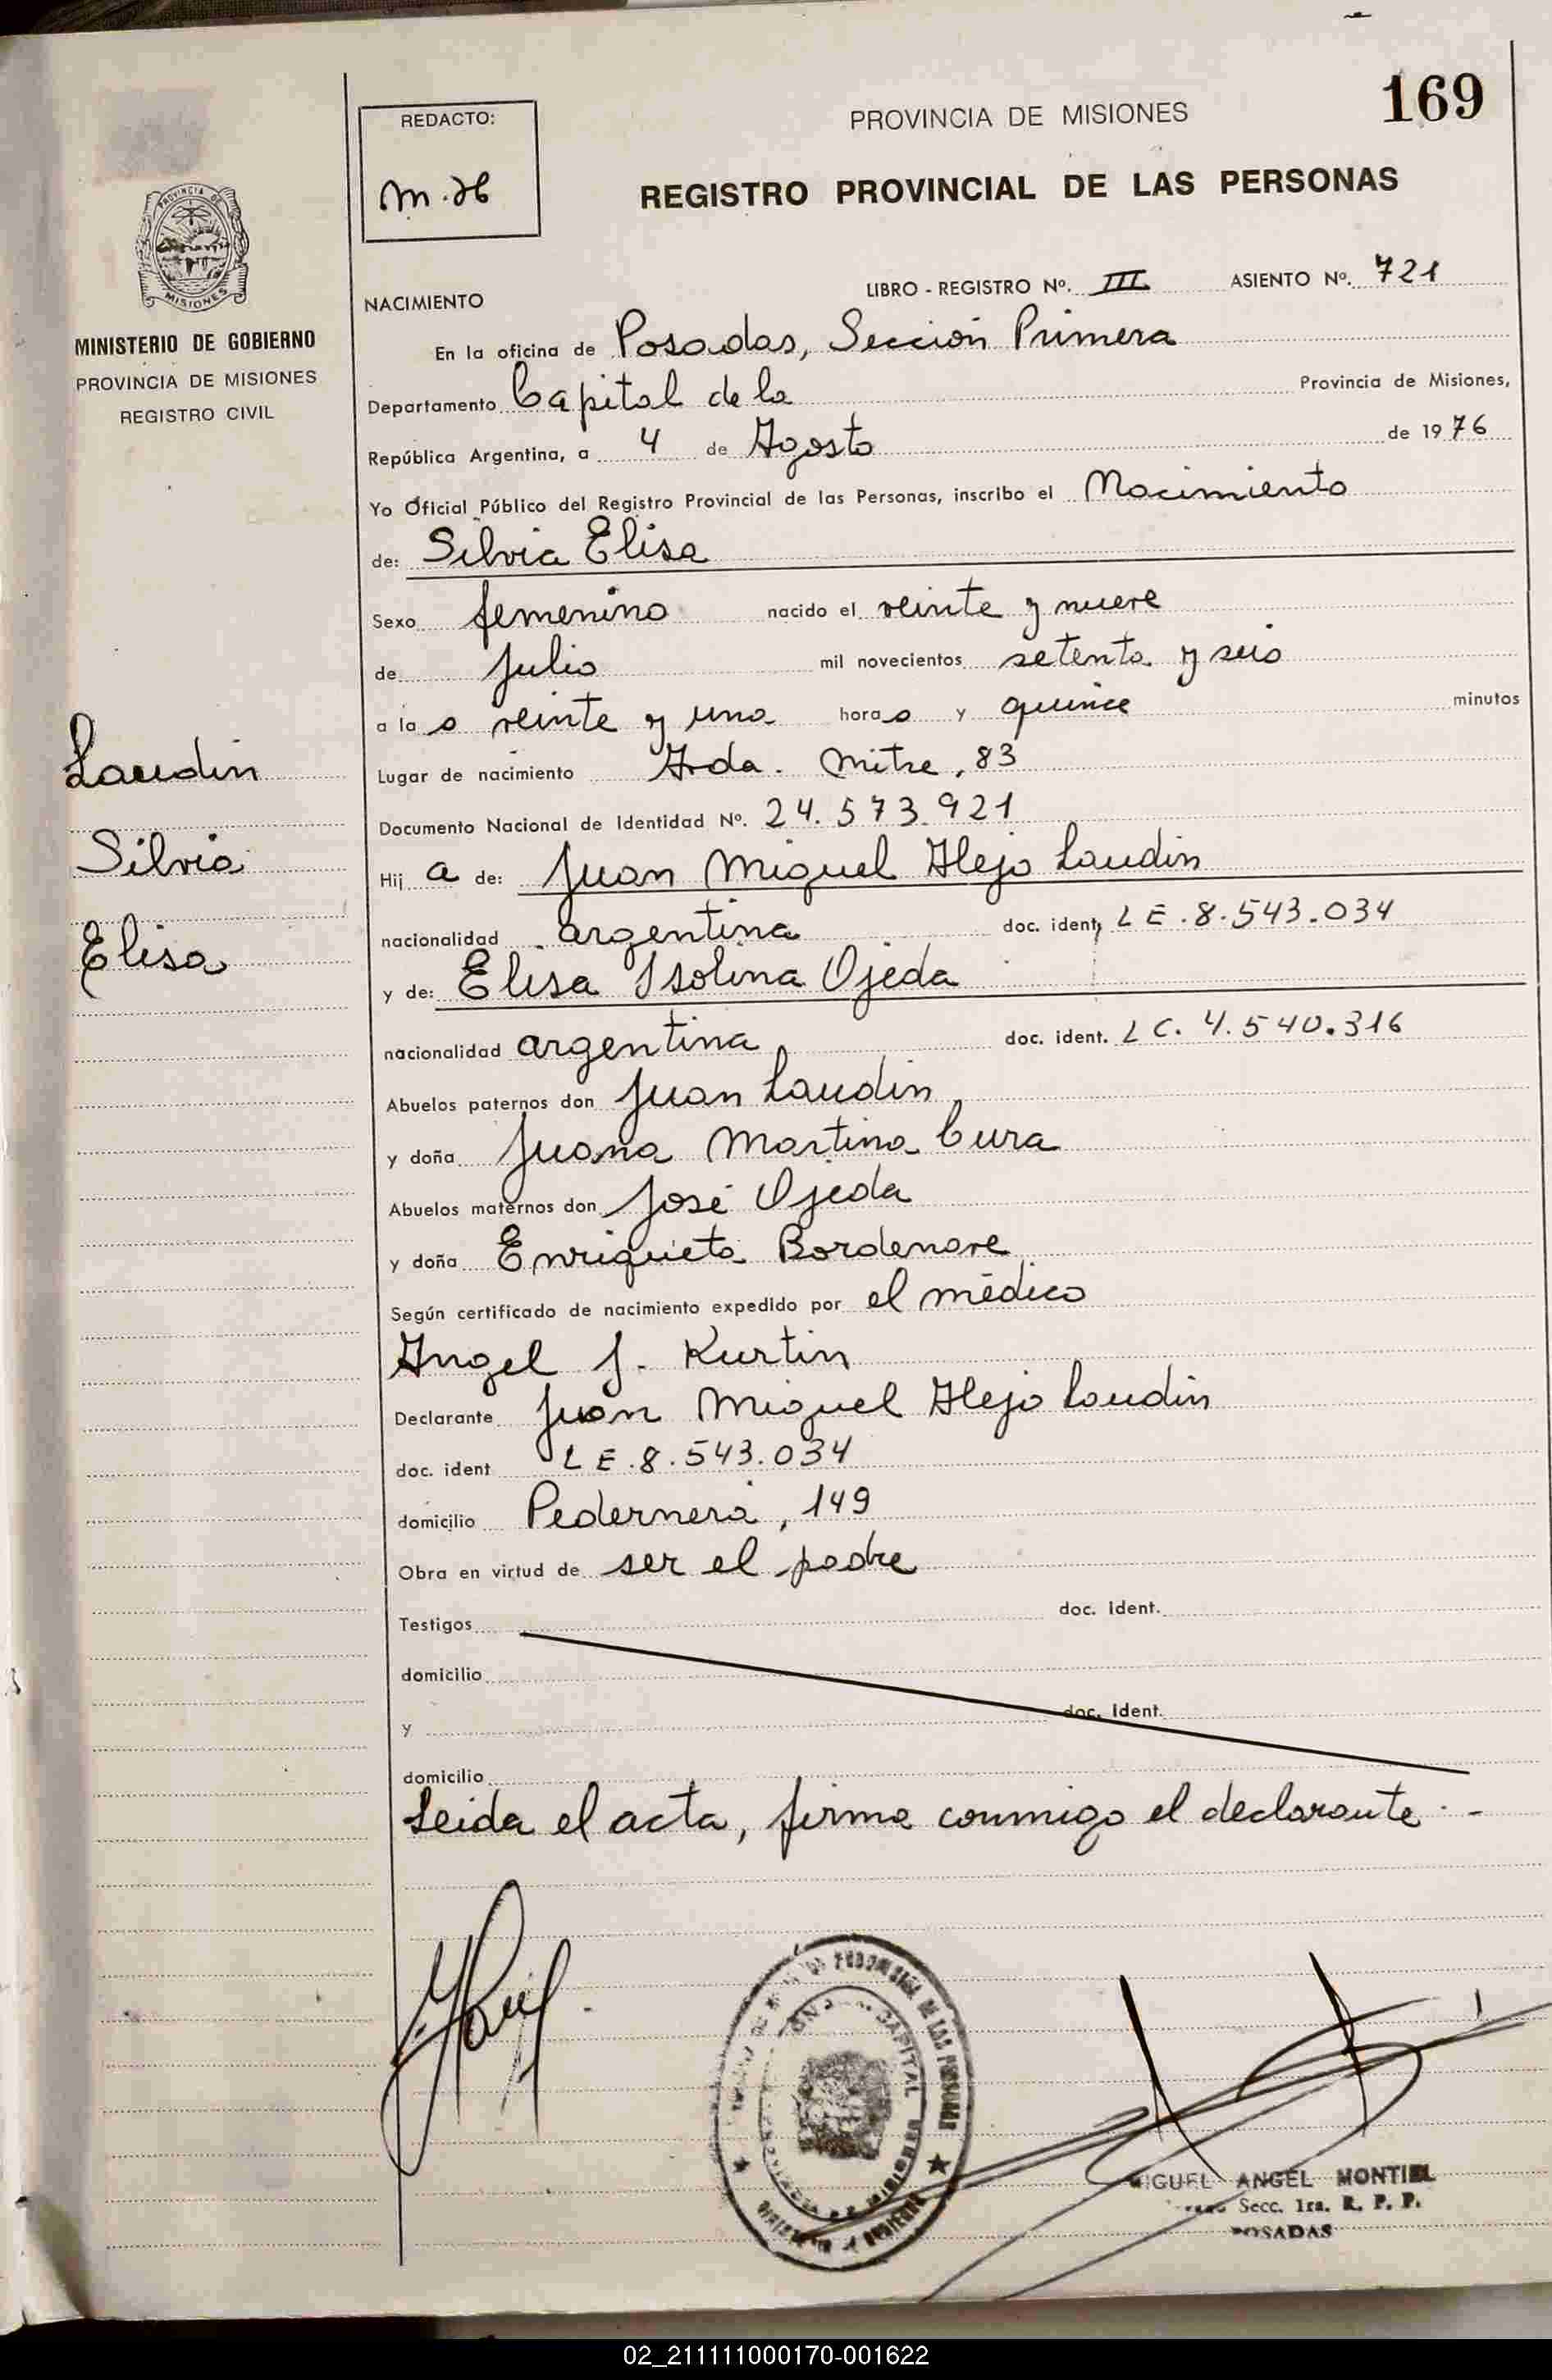 169
REDACTO:
PROVINCIA DE MISIONES
m.H
REGISTRO PROVINCIAL DE LAS PERSONAS
PROVINCIA DE
MISIONES
MINISTERIO DE GOBIERNO
PROVINCIA DE MISIONES
REGISTRO CIVIL
NACIMIENTO LIBRO - REGISTRO Nº. III ASIENTO Nº. 721
En la oficina de Posadas, Sección Primera
Departamento Capital de la Provincia de Misiones,
República Argentina, a 4 de Agosto de 1976
Yo Oficial Público del Registro Provincial de las Personas, inscribo el Nacimiento
de: Silvia Elisa
Sexo femenino nacido el veinte y nueve
de Julio mil novecientos setenta y seis
a la s veinte y una hora s y quince minutos
Lugar de nacimiento Avda. Mitre, 83
Documento Nacional de Identidad Nº. 24.573.921
Hij a de: Juan Miguel Alejo Laudin
nacionalidad argentina doc. ident. LE.8.543.034
y de: Elisa Isolina Ojeda
nacionalidad argentina doc. ident. LC. 4.540.316
Abuelos paternos don Juan Laudin
y doña Juana Martina Cura
Abuelos maternos don José Ojeda
y doña Enriqueta Bordenave
Según certificado de nacimiento expedido por el médico
Angel J. Kurtin
Declarante Juan Miguel Alejo Laudin
doc. ident LE.8.543.034
domicilio Pedernera, 149
Obra en virtud de ser el padre
Testigos doc. ident.
domicilio
y doc. ident.
domicilio
Leida el acta, firma conmigo el declarante.-
Laudin
Silvia
Elisa
CAPITAL
DE LAS PERSONAS
MIGUEL ANGEL MONTIEL
Secc. 1ra. R. P. P.
POSADAS
02_211111000170-001622